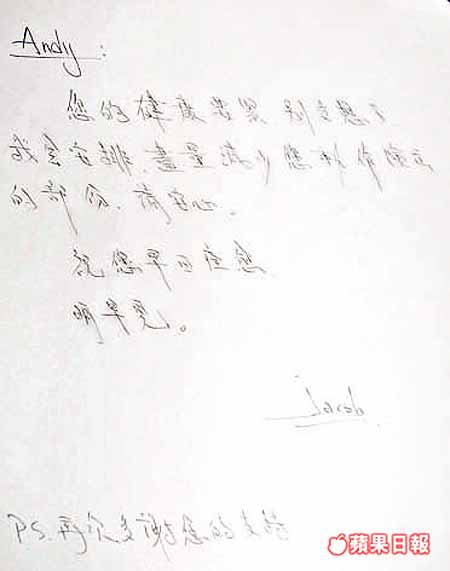 Andy:
您的健康要緊 別太想了
我會安排,盡量減少您
的部份,請安心。
祝您早日痊愈
明早見。
Jacob
PS.再次多謝您的支持
蘋果日報